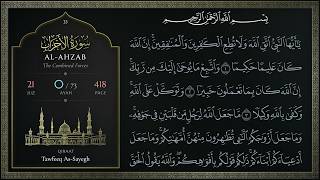 33
سُورَةُ الْأَحْزَابِ
AL-AHZAB
The Combined Forces
21
JUZ
0 / 73
AYAH
418
PAGE
QIRAAT
Tawfeeq As-Sayegh
بِسْمِ اللَّهِ الرَّحْمَٰنِ الرَّحِيمِ
يَا أَيُّهَا النَّبِيُّ اتَّقِ اللَّهَ وَلَا تُطِعِ الْكَافِرِينَ وَالْمُنَافِقِينَ إِنَّ اللَّهَ
كَانَ عَلِيمًا حَكِيمًا ۝١ وَاتَّبِعْ مَا يُوحَىٰ إِلَيْكَ مِن رَّبِّكَ
إِنَّ اللَّهَ كَانَ بِمَا تَعْمَلُونَ خَبِيرًا ۝٢ وَتَوَكَّلْ عَلَى اللَّهِ
وَكَفَىٰ بِاللَّهِ وَكِيلًا ۝٣ مَّا جَعَلَ اللَّهُ لِرَجُلٍ مِّن قَلْبَيْنِ فِي جَوْفِهِ
وَمَا جَعَلَ أَزْوَاجَكُمُ اللَّائِي تُظَاهِرُونَ مِنْهُنَّ أُمَّهَاتِكُمْ وَمَا جَعَلَ
أَدْعِيَاءَكُمْ أَبْنَاءَكُمْ ذَٰلِكُمْ قَوْلُكُم بِأَفْوَاهِكُمْ وَاللَّهُ يَقُولُ الْحَقَّ